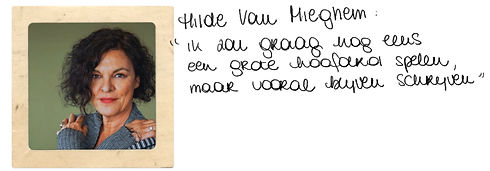 Hilde Van Mieghem:
"ik zou graag nog eens
een grote hoofdrol spelen,
maar vooral blijven schrijven"